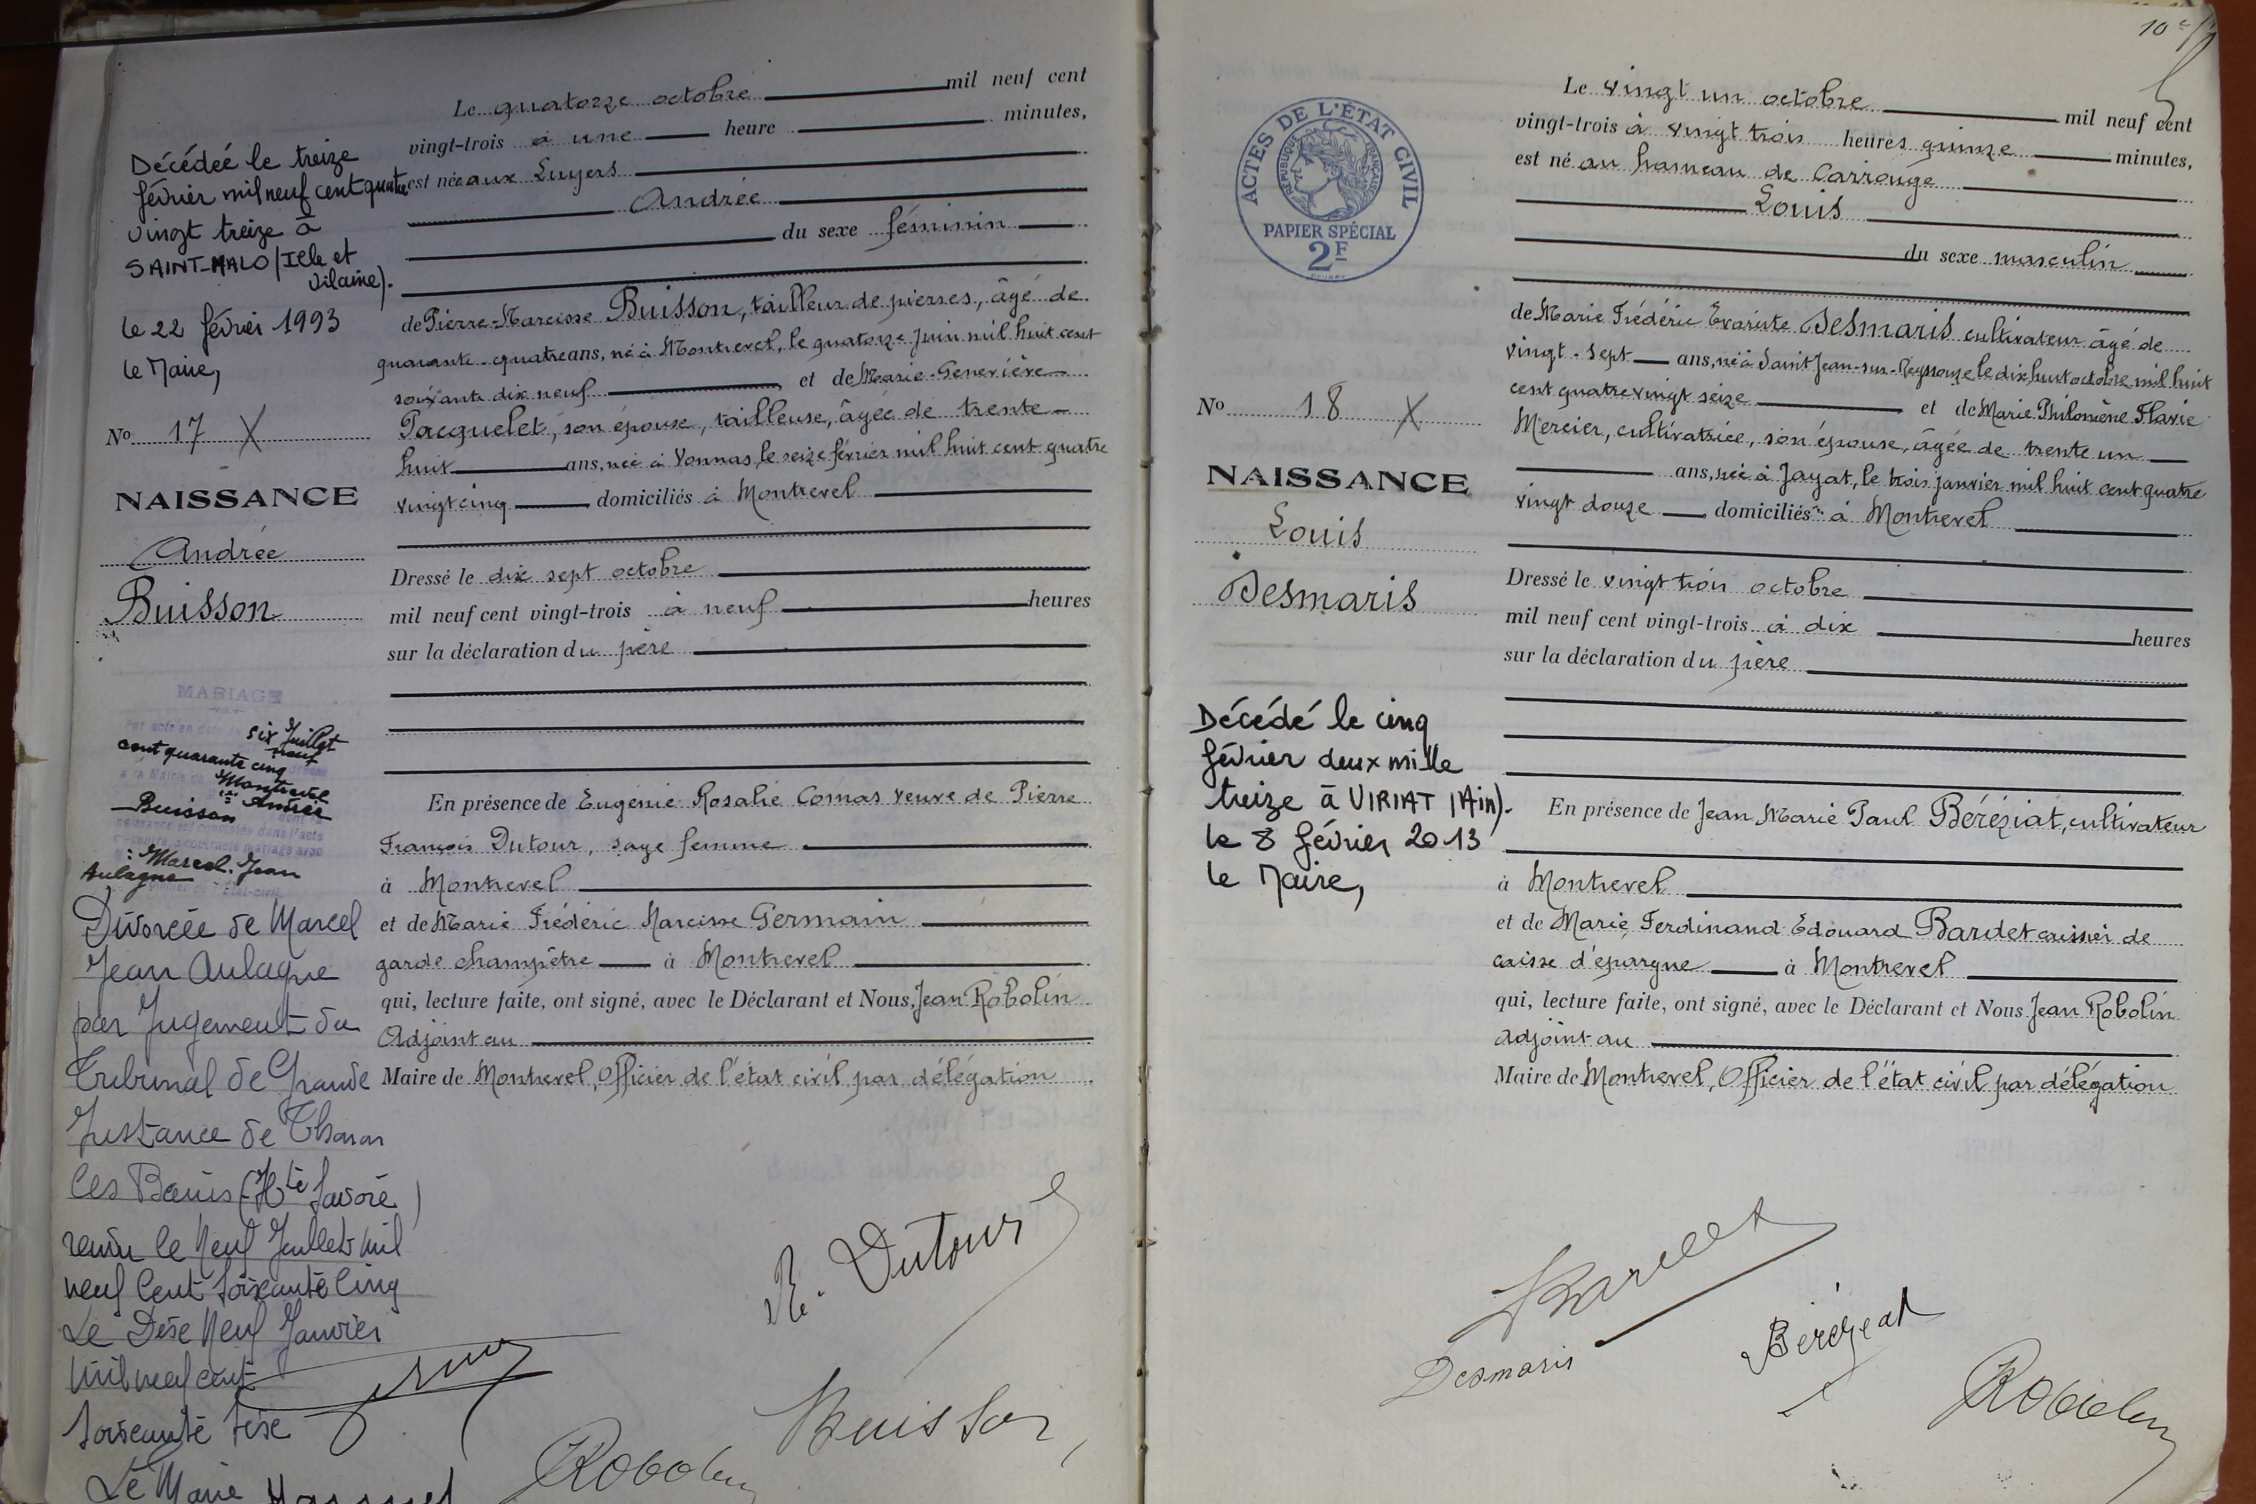 Le quatorze octobre mil neuf cent
vingt-trois à une heure minutes,
est née aux Luyers
Andrée
du sexe féminin
de Pierre-Narcisse Buisson, tailleur de pierres, âgé de
quarante-quatre ans, né à Montrevel, le quatorze Juin mil huit cent
soixante dix neuf et de Marie-Geneviève
Pacquelet, son épouse, tailleuse, âgée de trente-
huit ans, née à Vonnas, le seize février mil huit cent quatre
vingt cinq domiciliés à Montrevel
Dressé le dix sept octobre
mil neuf cent vingt-trois à neuf heures
sur la déclaration du père
En présence de Eugénie Rosalie Comas veuve de Pierre
François Dutour, sage femme
à Montrevel
et de Marie Frédéric Narcisse Germain
garde champêtre à Montrevel
qui, lecture faite, ont signé, avec le Déclarant et Nous, Jean Robolin
Adjoint au
Maire de Montrevel, Officier de l'état civil par délégation
R. Dutour
Buisson
Robolin
Décédeé le treize
février mil neuf cent quatre
vingt treize à
SAINT-MALO (Ille et
Vilaine).
le 22 février 1993
le Maire,
No 17 X
NAISSANCE
Andrée
Buisson
MARIAGE
six Juillet
neuf
cent quarante cinq
Montrevel
Andrée
Buisson
Marcel. Jean
Aulagne
Divorcée de Marcel
Jean Aulagne
par Jugement du
Tribunal de Grande
Instance de Thonon
les Bains (Hte Savoie)
rendu le Neuf Juillet Mil
neuf Cent Soixante Cinq
Le Dix Neuf Janvier
Mil neuf cent
Soixante Six
Le Maire
10e
ACTES DE L'ÉTAT CIVIL
RÉPUBLIQUE FRANÇAISE
PAPIER SPÉCIAL
2F
Le vingt un octobre mil neuf cent
vingt-trois à vingt trois heures quinze minutes,
est né au hameau de Carrouge
Louis
du sexe masculin
de Marie Frédéric Evariste Desmaris cultivateur âgé de
vingt-sept ans, né à Saint Jean-sur-Reyssouze le dix huit octobre mil huit
cent quatre vingt seize et de Marie Philomène Flavie
Mercier, cultivatrice, son épouse, âgée de trente un
ans, née à Jayat, le trois janvier mil huit cent quatre
vingt douze domiciliés à Montrevel
Dressé le vingt trois octobre
mil neuf cent vingt-trois à dix heures
sur la déclaration du père
En présence de Jean Marie Paul Béréziat, cultivateur
à Montrevel
et de Marie Ferdinand Edouard Bardet caissier de
caisse d'épargne à Montrevel
qui, lecture faite, ont signé, avec le Déclarant et Nous Jean Robolin
adjoint au
Maire de Montrevel, Officier de l'état civil par délégation
Bardet
Desmaris
Béréziat
Robolin
No 18 X
NAISSANCE
Louis
Desmaris
Décédé le cinq
février deux mille
treize à VIRIAT (Ain).
le 8 février 2013
le Maire,